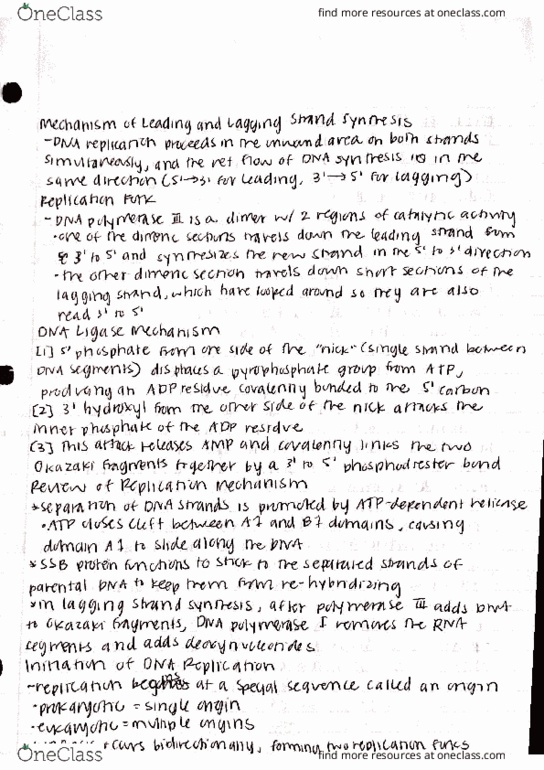 OneClass
find more resources at oneclass.com
Mechanism of Leading and Lagging Strand Synthesis
-DNA replication proceeds in the unwound area on both strands
simultaneously, and the net flow of DNA synthesis is in the
same direction (5'→3' for leading, 3'→5' for lagging)
Replication Fork
-DNA polymerase III is a dimer w/ 2 regions of catalytic activity
•one of the dimeric sections travels down the leading strand from
3' to 5' and synthesizes the new strand in the 5' to 3' direction
•the other dimeric section travels down short sections of the
lagging strand, which have looped around so they are also
read 3' to 5'
DNA Ligase Mechanism
[1] 5' phosphate from one side of the "nick" (single strand between
DNA segments) displaces a pyrophosphate group from ATP,
producing an ADP residue covalently bonded to the 5' carbon
[2] 3' hydroxyl from the other side of the nick attacks the
inner phosphate of the ADP residue
[3] This attack releases AMP and covalently links the two
Okazaki fragments together by a 3' to 5' phosphodiester bond
Review of Replication Mechanism
*separation of DNA strands is promoted by ATP-dependent helicase
•ATP closes cleft between A1 and B1 domains, causing
domain A1 to slide along the DNA
*SSB protein functions to stick to the separated strands of
parental DNA to keep them from re-hybridizing
*in lagging strand synthesis, after polymerase III adds DNA
to Okazaki fragments, DNA polymerase I removes the RNA
segments and adds deoxynucleotides
Initiation of DNA Replication
-replication begins at a special sequence called an origin
•prokaryotic = single origin
•eukaryotic = multiple origins
occurs bidirectionally, forming two replication forks
OneClass
find more resources at oneclass.com